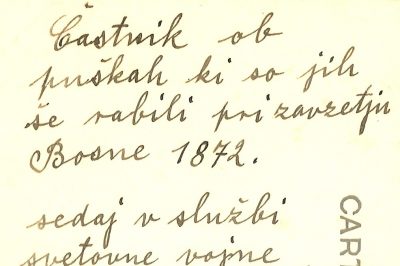 Častnik ob
puškah ki so jih
še rabili pri zavzetju
Bosne 1872.
sedaj v službi
svetovne vojne
CART